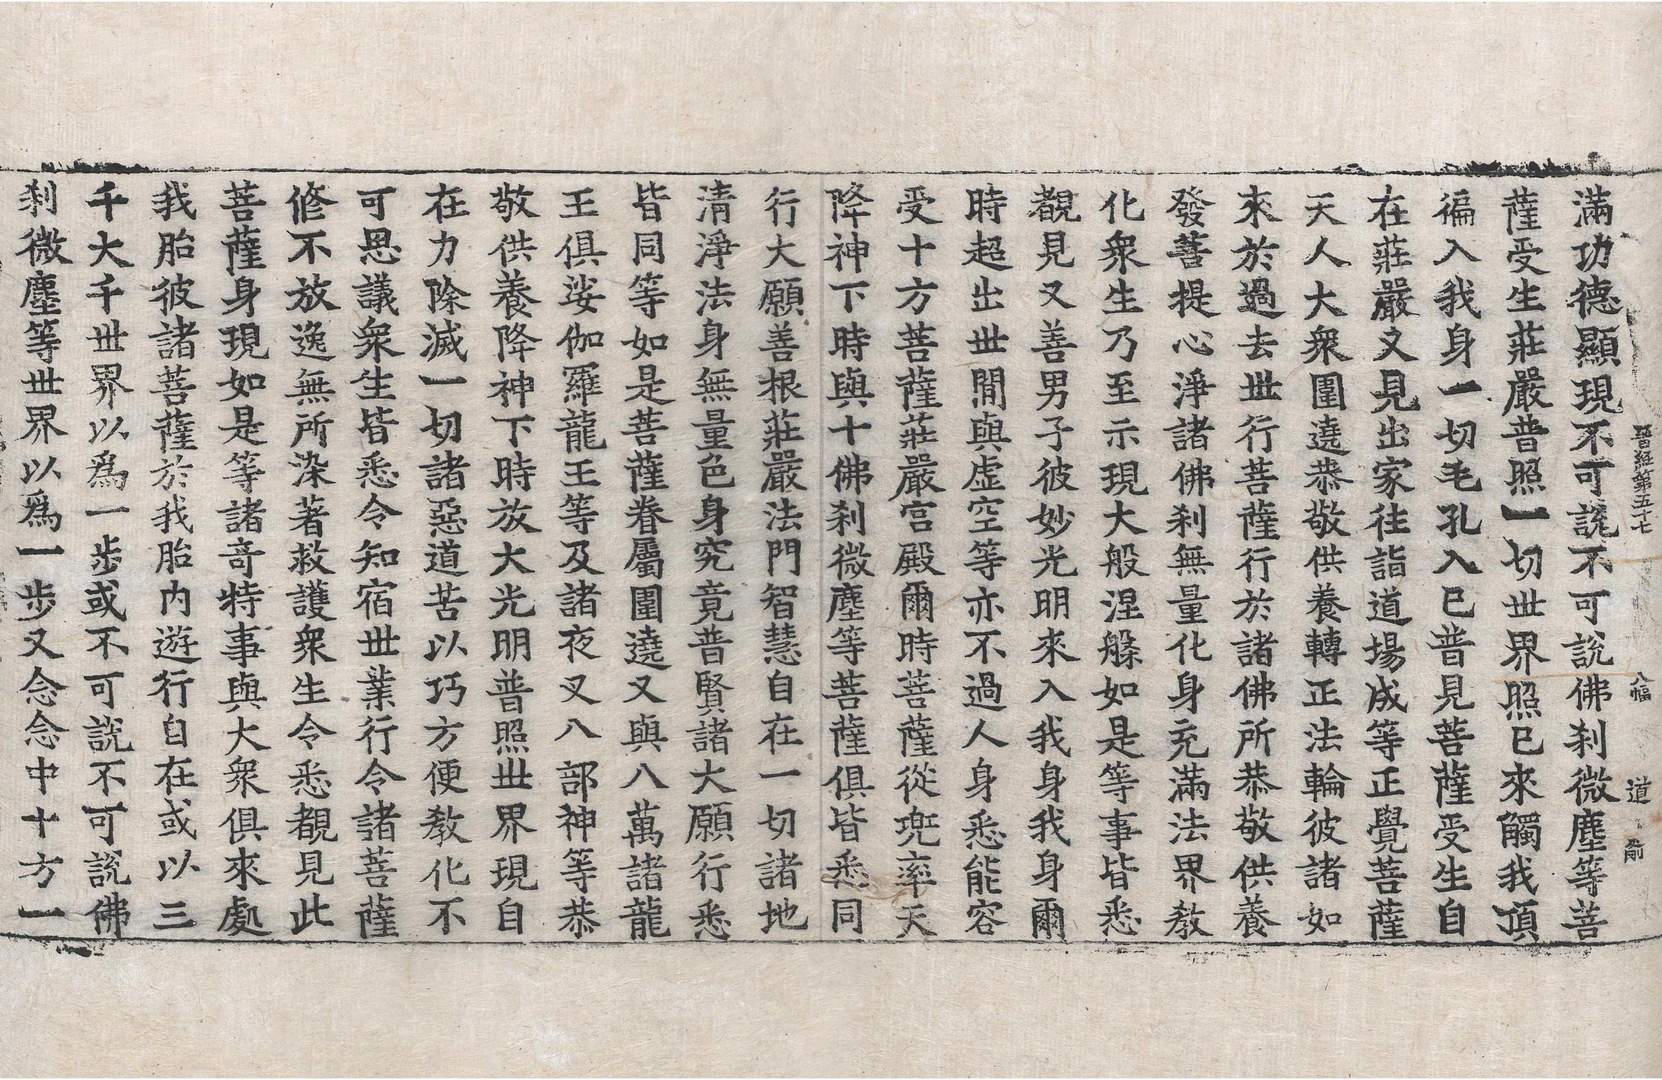 晉經第五十七 八幅 道
滿功德顯現不可說不可說佛刹微塵等菩
薩受生莊嚴普照一切世界照已來觸我頂
徧入我身一切毛孔入已普見菩薩受生自
在莊嚴又見出家往詣道場成等正覺菩薩
天人大衆圍遶恭敬供養轉正法輪彼諸如
來於過去世行菩薩行於諸佛所恭敬供養
發菩提心淨諸佛刹無量化身充滿法界教
化衆生乃至示現大般涅槃如是等事皆悉
覩見又善男子彼妙光明來入我身我身爾
時超出世閒與虛空等亦不過人身悉能容
受十方菩薩莊嚴宮殿爾時菩薩從兜率天
降神下時與十佛刹微塵等菩薩俱皆悉同
行大願善根莊嚴法門智慧自在一切諸地
清淨法身無量色身究竟普賢諸大願行悉
皆同等如是菩薩眷屬圍遶又與八萬諸龍
王俱娑伽羅龍王等及諸夜叉八部神等恭
敬供養降神下時放大光明普照世界現自
在力除滅一切諸惡道苦以巧方便教化不
可思議衆生皆悉令知宿世業行令諸菩薩
修不放逸無所染著救護衆生令悉覩見此
菩薩身現如是等諸奇特事與大衆俱來處
我胎彼諸菩薩於我胎內遊行自在或以三
千大千世界以爲一步或不可說不可說佛
刹微塵等世界以爲一步又念念中十方一